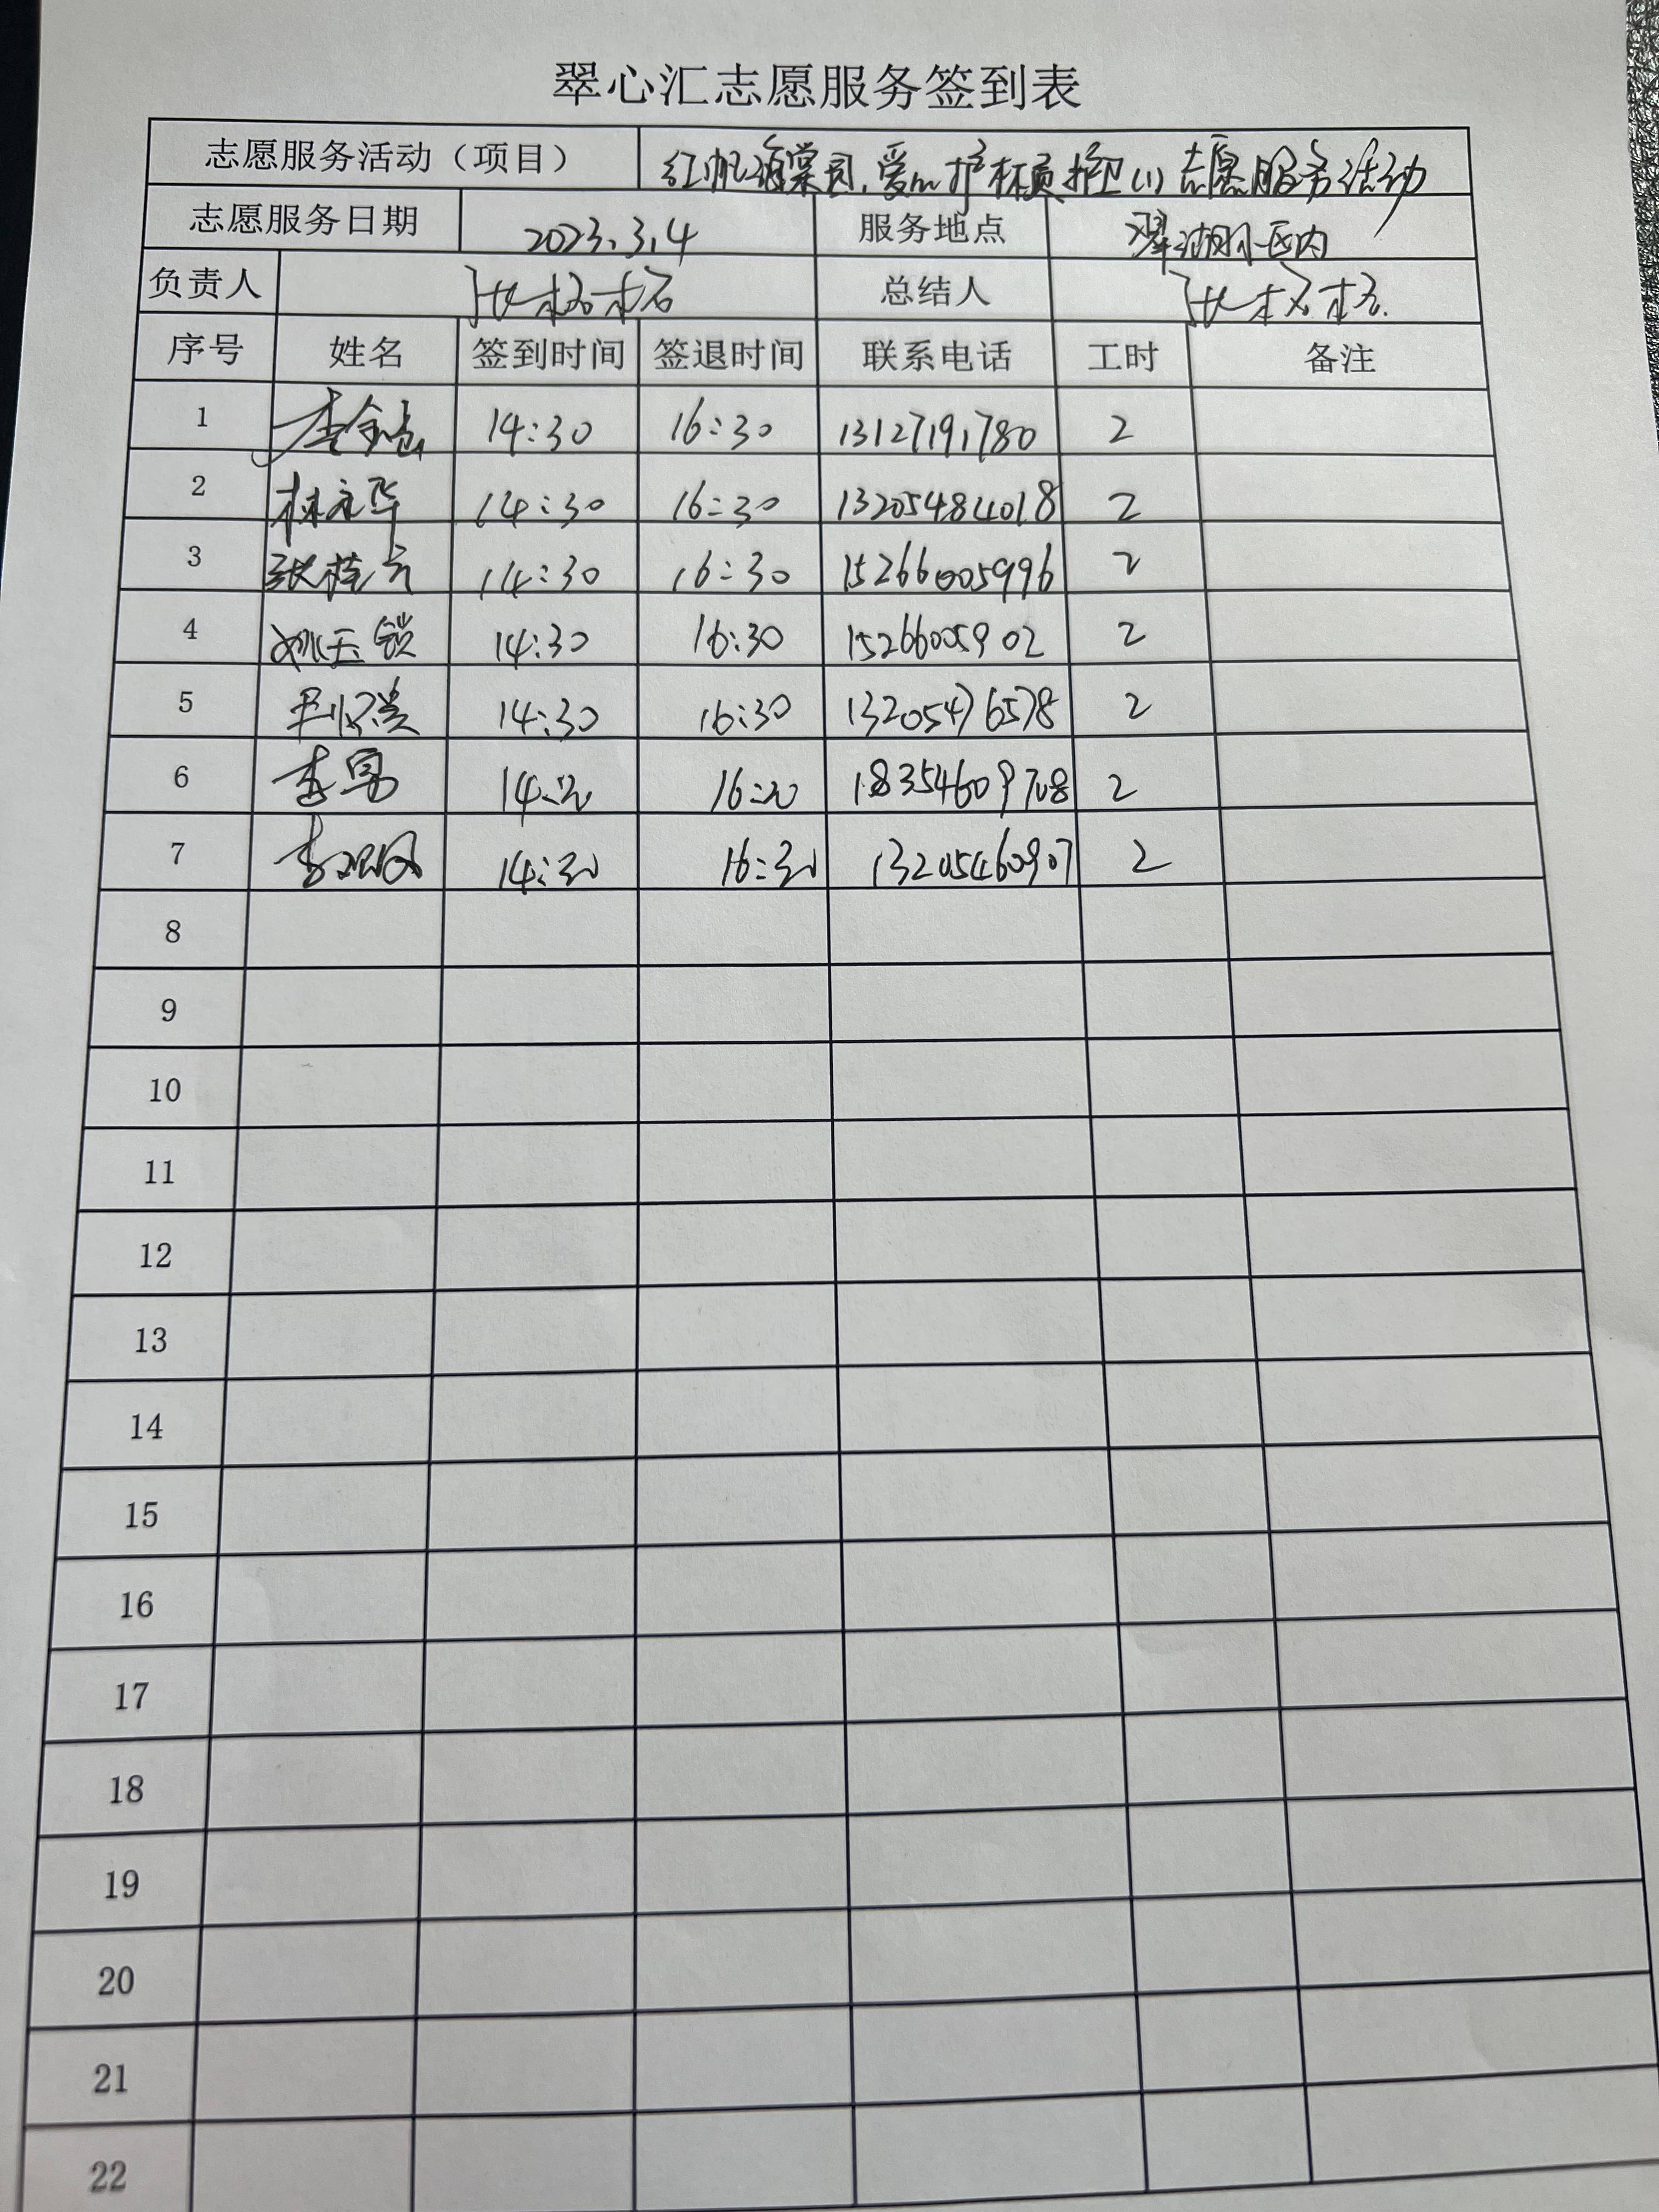 翠心汇志愿服务签到表
志愿服务活动（项目） 红帆海棠园,爱心护 (1)志愿服务活动
志愿服务日期 2023.3.4 服务地点 翠湖小区内
负责人 总结人
序号 姓名 签到时间 签退时间 联系电话 工时 备注
1 14:30 16:30 13127191780 2
2 林永华 14:30 16:30 13205484018 2
3 张桂方 14:30 16:30 15266005996 2
4 姚玉锁 14:30 16:30 15266005902 2
5 14:30 16:30 13205476578 2
6 李勇 14:30 16:30 18354609708 2
7 14:30 16:30 13205460907 2
8
9
10
11
12
13
14
15
16
17
18
19
20
21
22